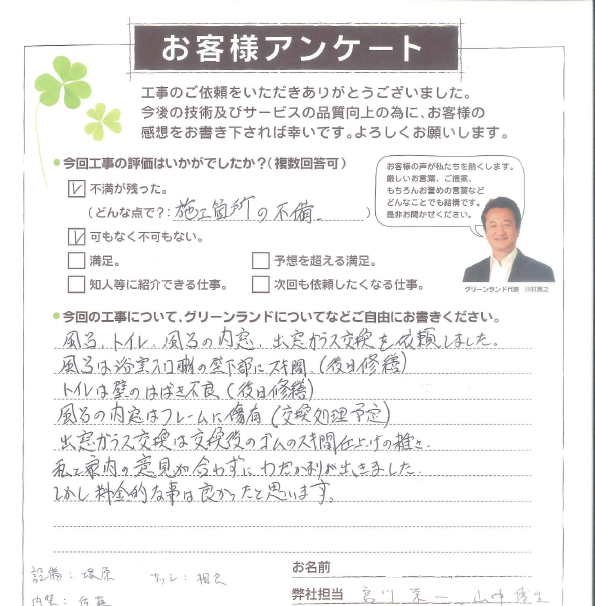 お客様アンケート
工事のご依頼をいただきありがとうございました。
今後の技術及びサービスの品質向上の為に、お客様の
感想をお書き下されば幸いです。よろしくお願いします。
●今回工事の評価はいかがでしたか?(複数回答可)
不満が残った。
(どんな点で?:施工箇所の不備 )
可もなく不可もない。
満足。 予想を超える満足。
知人等に紹介できる仕事。 次回も依頼したくなる仕事。
お客様の声が私たちを熱くします。
厳しいお言葉、ご提案、
もちろんお誉めの言葉など
どんなことでも結構です。
是非お聞かせください。
グリーンランド代表 川村寛之
●今回の工事について、グリーンランドについてなどご自由にお書きください。
風呂、トイレ、風呂の内窓、出窓ガラス交換を依頼しました。
風呂は浴室入口側の壁下部にスキ間(後日修繕)
トイレは壁のはばき不良(後日修繕)
風呂の内窓はフレームに傷有(交換処理予定)
出窓ガラス交換は交換後のゴムのスキ間仕上げの種を
私と家内の意見が合わずにわだかまりが出きました
しかし料金的な事は良かったと思います。
お名前
設備: 塚原 サッシ: 相良
弊社担当 宮川 栄一 山中
内装: 佐藤